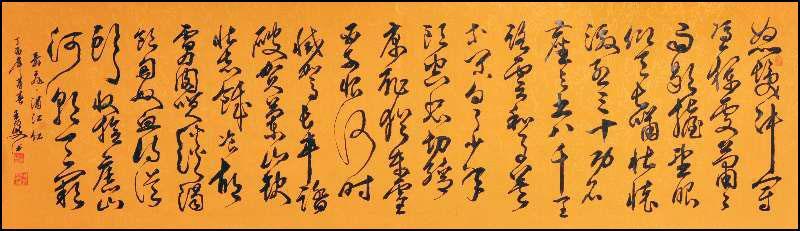 怒髮冲冠
憑欄處蕭蕭
雨歇擡望眼
仰天長嘯壯懷
激烈三十功名
塵與土八千里
路雲和月莫
等閒白了少年
頭空悲切靖
康耻猶未雪
臣子恨何時
滅駕長車踏
破賀蘭山缺
壯志飢餐胡
虜肉笑談渴
飲匈奴血待從
頭收拾舊山
河朝天闕
岳飛滿江紅
丁酉年春